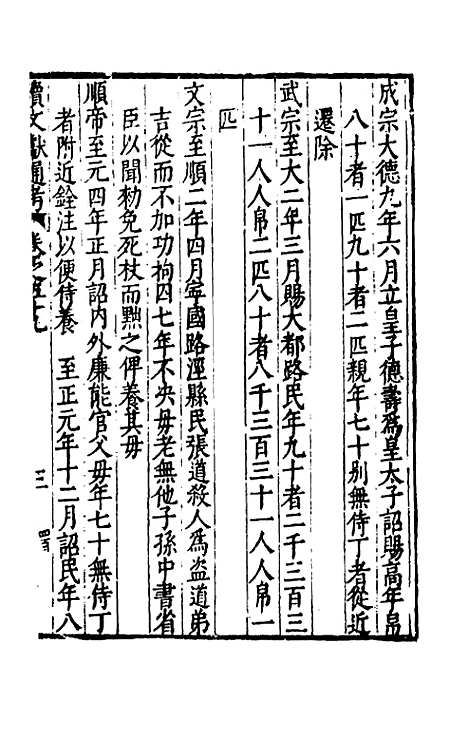 成宗大德九年六月立皇子德壽爲皇太子詔賜高年帛
八十者一匹九十者二匹親年七十别無侍丁者從近
遷除
武宗至大二年三月賜大都路民年九十者二千三百三
十一人人帛二匹八十者八千三百三十一人人帛一
匹
文宗至順二年四月寧國路涇縣民張道殺人爲盗道弟
吉從而不加功拘囚七年不决毋老無他子孫中書省
臣以聞勑免死杖而黥之俾養其毋
順帝至元四年正月詔内外廉能官父毋年七十無侍丁
者附近銓注以便侍養　至正元年十二月詔民年八
續文獻通考　卷之　十九　三